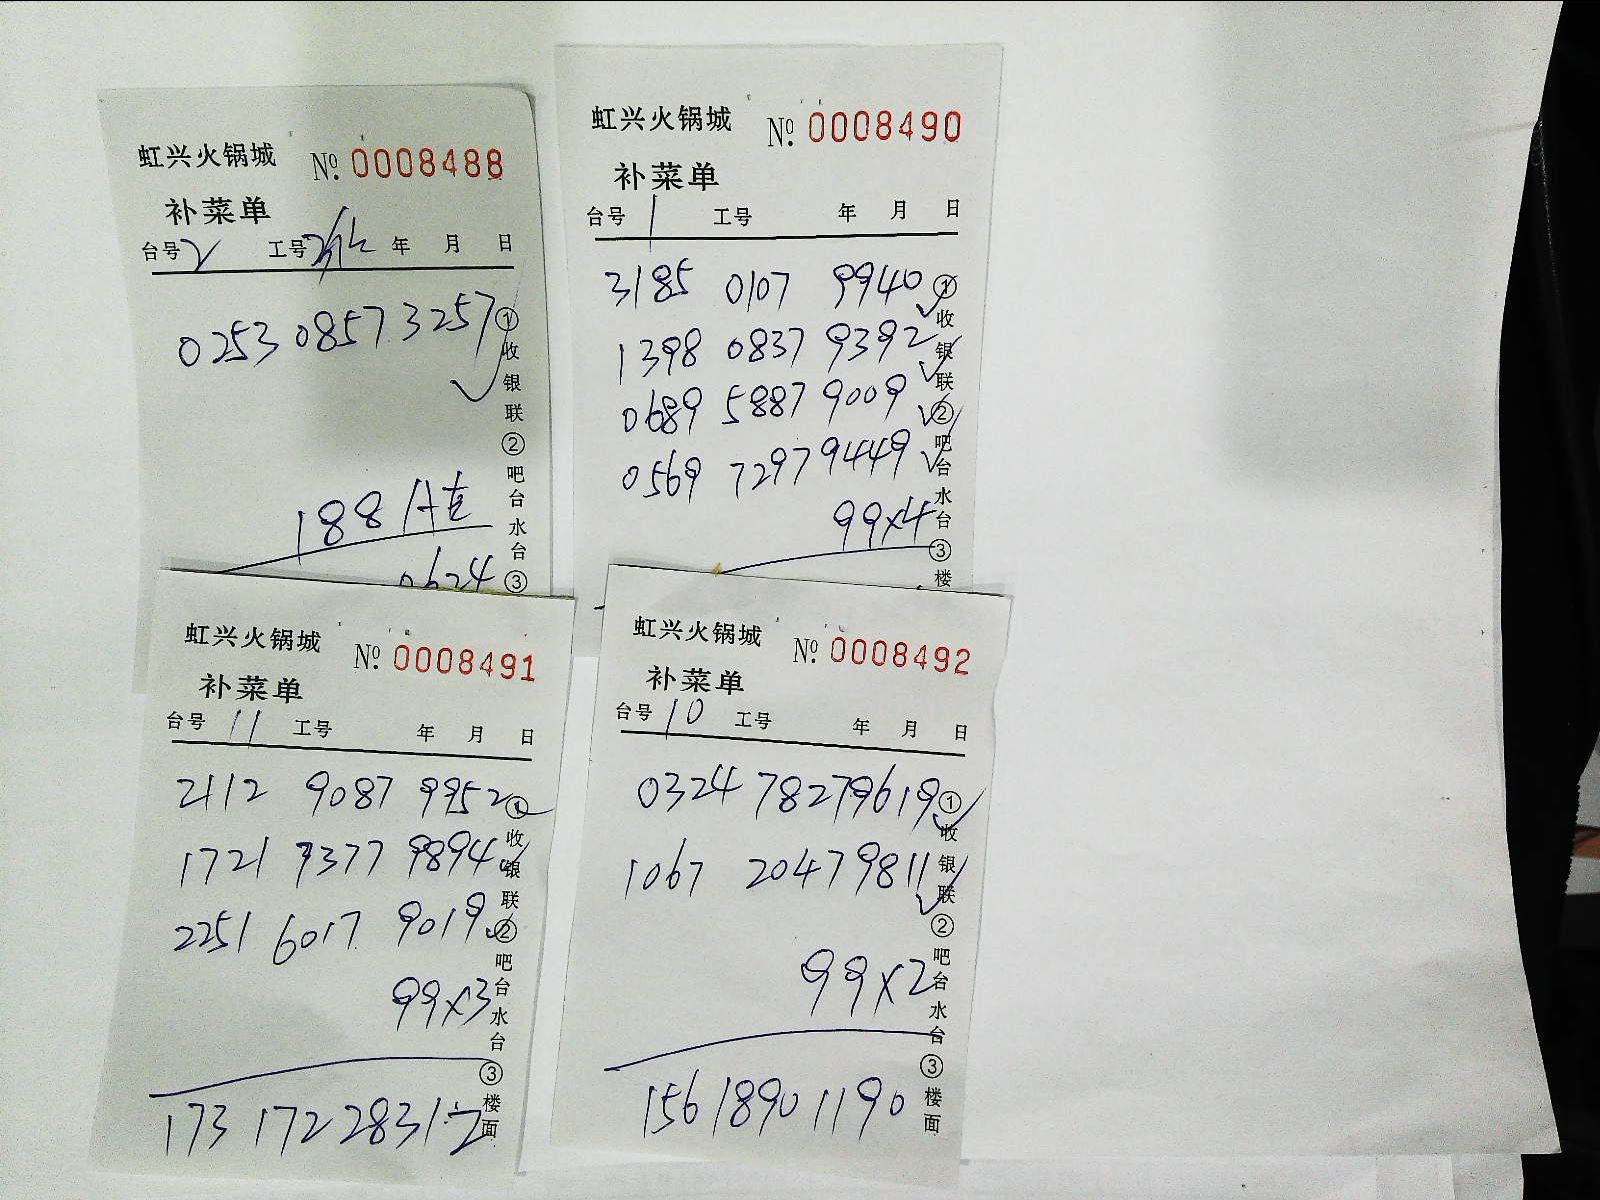 虹兴火锅城 No. 0008488
补菜单
台号 2 工号 年 月 日
0253 0857 3257
188 A
0624
①收银联②吧台水台③
虹兴火锅城 No. 0008490
补菜单
台号 1 工号 年 月 日
3185 0107 9940
1398 0837 9392
0689 5887 9009
0569 7297 9449
99×4
①收银联②吧台水台③楼
虹兴火锅城 No. 0008491
补菜单
台号 11 工号 年 月 日
2112 9087 9952
1721 9377 9894
2251 6017 9019
99×3
173 1722831
①收银联②吧台水台③楼面
虹兴火锅城 No. 0008492
补菜单
台号 10 工号 年 月 日
0324 7827 9619
1067 2047 9811
99×2
156 1890 1190
①收银联②吧台水台③楼面